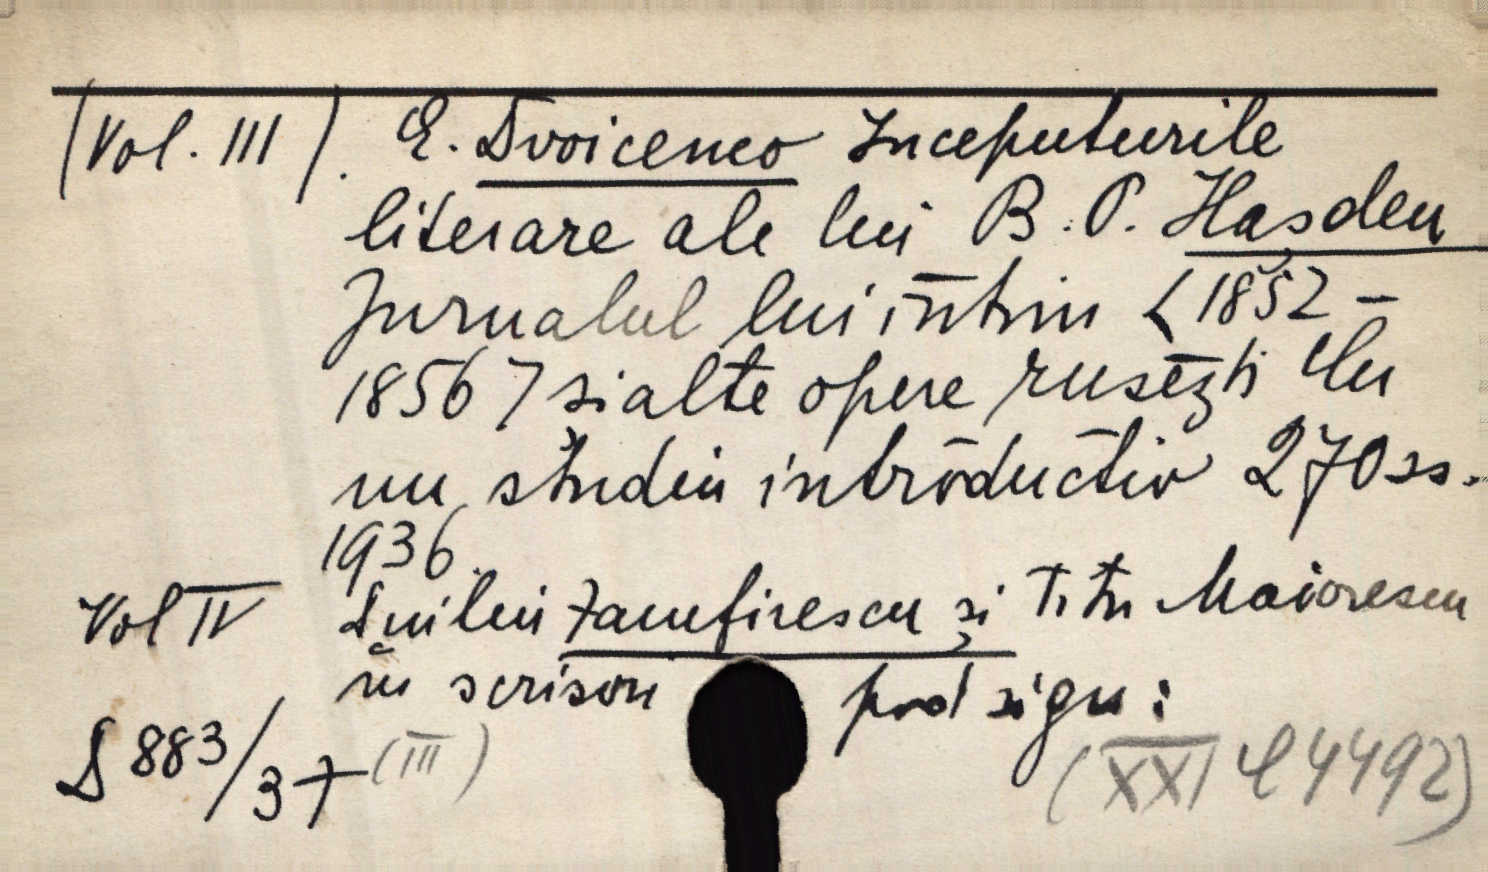 (Vol. III). E. Dvoicenco Inceputurile
literare ale lui B. P. Hașdeu
Jurnalul lui intim <1852 -
1856> si alte opere rusești Cu
un studiu introductiv 270 ss.
1936.
Vol IV Duiliu Zamfirescu și Titu Maiorescu
în scrisori pod sign:
D 883/37 (III) (XXI 4492)